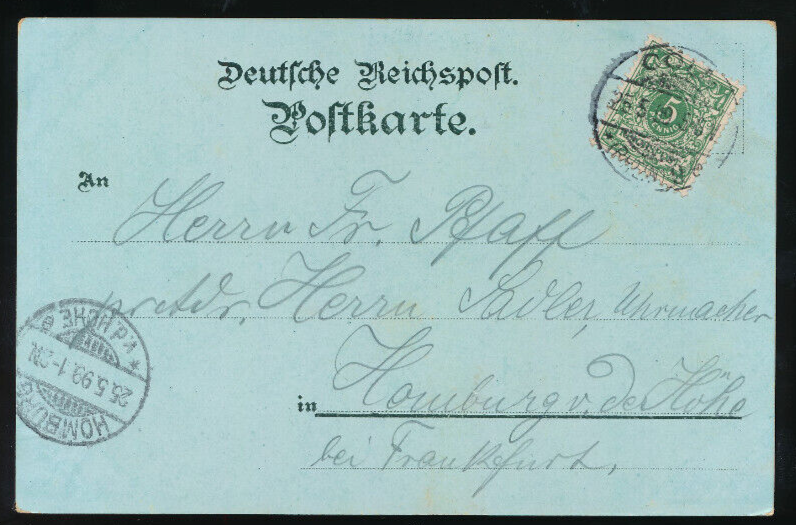 Deutsche Reichspost.
Postkarte.
5
PFENNIG
An
Herrn Fr. Pfaff
Herrn Sadler, Uhrmacher
in Homburg v. der Höhe
bei Frankfurt.
HOMBURG
25.5.99.1-2N.
* v.d. HÖHE e